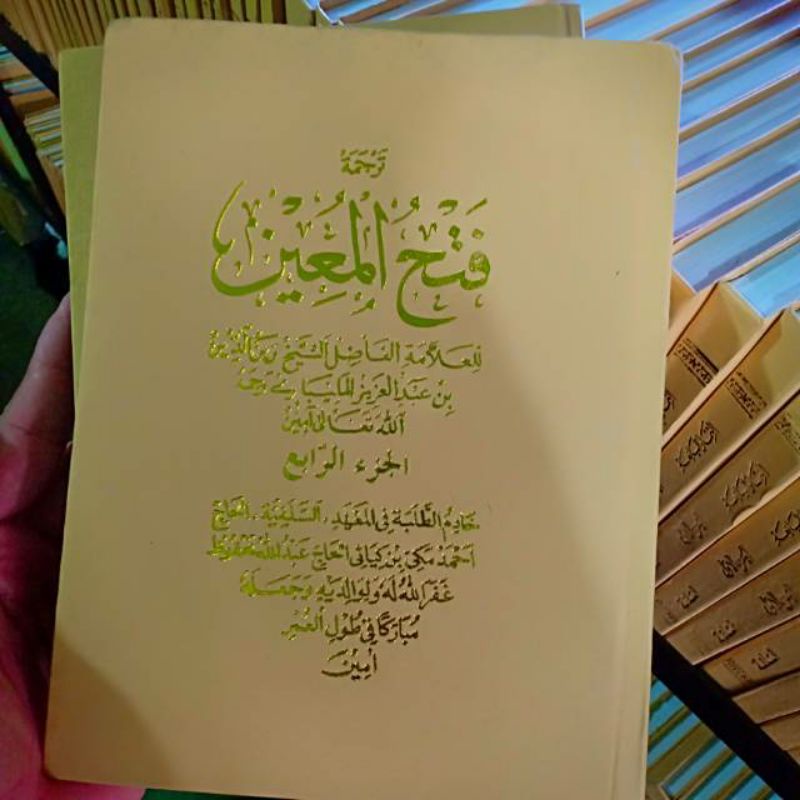 تَرْجَمَةُ
فَتْحُ المُعِيْنِ
لِلعَلاَّمَةِ الفَاضِلِ الشَّيْخِ زَيْنُ الدِّيْنِ
بِنْ عَبْدِ العَزِيْزِ المَلِيْبَارِيْ رَحِمَهُ
اللهُ تَعَالى آمِيْنَ
الجُزءُ الرَّابِعُ
خَادِمُ الطَّلَبَةِ فِى المَعْهَدِ. السَّلَفِيَّةِ. الحَاجْ
اَحْمَدْ مَكِّىْ بِنْ كِيَاىْ الحَاجْ عَبْدُ اللهْ مَحْفُوظْ
غَفَرَ اللهُ لَهُ وَلِوَالِدَيْهِ وَجَعَلَهُ
مُبَارَكًا فِى طُوْلِ العُمْرِ
اٰمِيْنَ